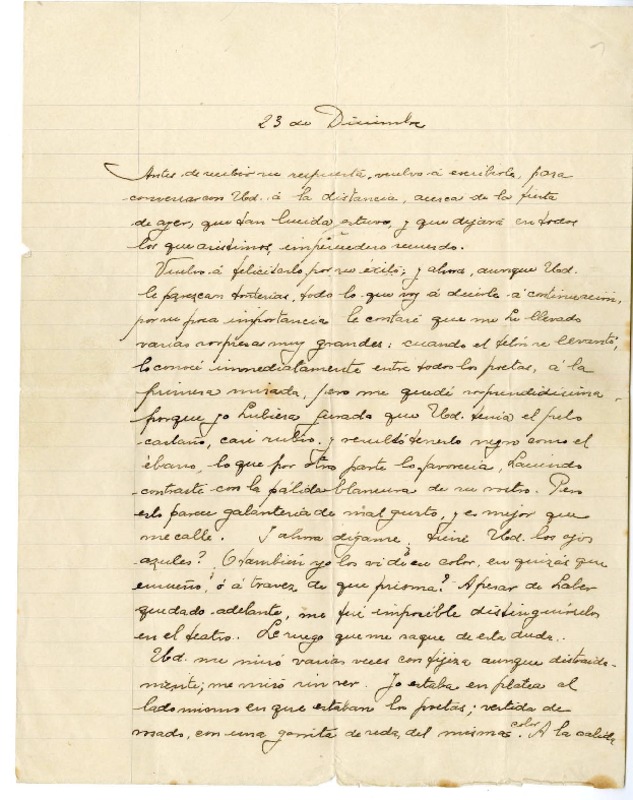 23 de Diciembre
Antes de recibir su respuesta, vuelvo á escribirle, para
conversar con Ubd. á la distancia, acerca de la fiesta
de ayer, que tan lucida estuvo, y que dejará en todos
los que asistimos, imperecedero recuerdo.
Vuelvo á felicitarlo, por su éxito; y ahora, aunque Ubd.
le parezcan tonterias, todo lo que voy á decirle á continuación,
por su poca importancia le contaré que me he llevado
varias sorpresas muy grandes: cuando el telón se llevantó,
lo conocí inmediatamente entre todos los poetas, á la
primera mirada, pero me quedé sorprendidisima
porque yo hubiera jurado que Ubd. tenía el pelo
castaño, casi rubio, y resultó tenerlo negro como el
ébano, lo que por otra parte lo favorecia, haciendo
contraste con la pálida blancura de su rostro. Pero
esto parece galanteria de mal gusto, y es mejor que
me calle. I ahora dígame, tiene Ubd. los ojos
azules? O tambien yo los vidé en color, en quizás que
ensueño, ó á travez de que prisma? Apesar de haber
quedado adelante, me fué imposible distinguírselos
en el teatro. Le ruego que me saque de esta duda..
Ubd. me miró varias veces con fijeza aunque distraida-
mente; me miró sin ver. Yo estaba en platea al
lado mismo en que estaban los poetas; vestida de
rosado, con una gorrita de seda, del mismo color. A la salida